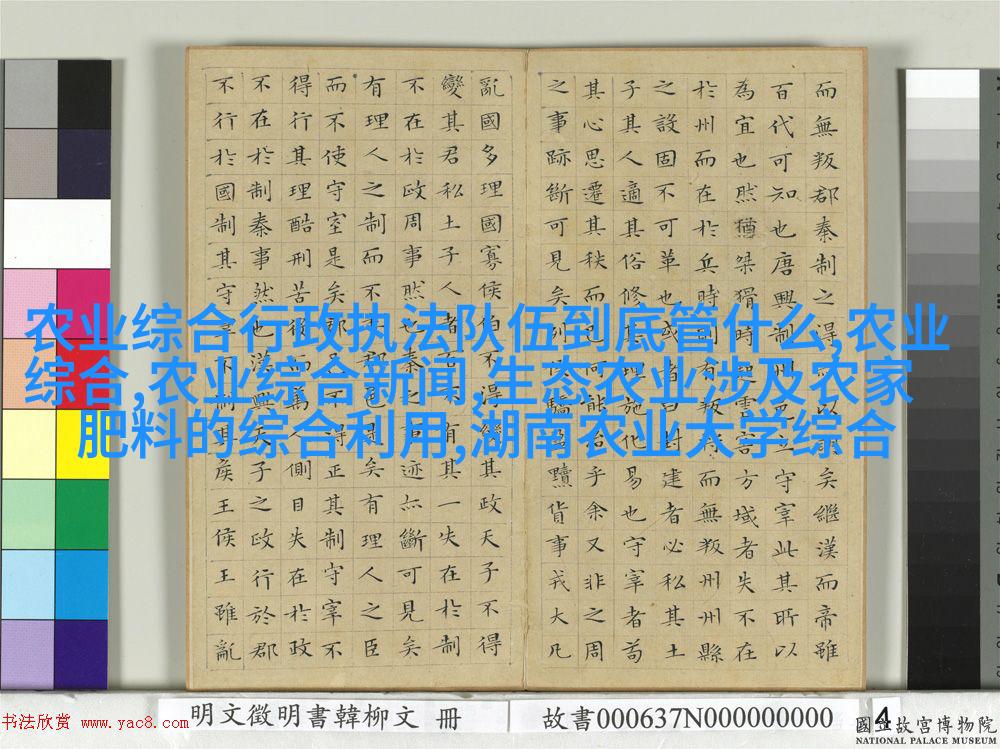 而無叛郡秦制之得以矣繼漢而帝雖
百代可知也唐興制州邑立守宰此其所以
為宜也然猶桀猾時起虐害方域者失不在
於州而在於兵時則有叛將而無叛州州縣
之設固不可革也或者曰封建者必私其土
子其人適其俗修其理施化易也守宰者苟
其心思遷其秩而已何能乎余又非之周
之事跡斷可見矣列侯驕黷貨事戎大凡
亂國多理國寡侯伯不得變其政天子不得
變其君私土子人者百不有其一失在於制
不在於政周事然也秦之事迹亦斷可見矣
有理人之制而不委郡邑是矣有理人之臣
而不使守宰是矣郡邑不得正其制守宰不
得行其理酷刑苦役而萬人側目失在於政
不在於制秦事然也漢興天子之政行於郡
不行於國制其守宰不制其侯王侯王雖亂
农业综合行政执法队伍到底管什么,农业
综合,农业综合新闻,生态农业涉及农家
肥料的综合利用,湖南农业大学综合
书法欣赏 www.yac8.com
明文徵明書韓柳文 冊
故書000637N000000000
4
國立故宮博物院
NATIONAL PALACE MUSEUM